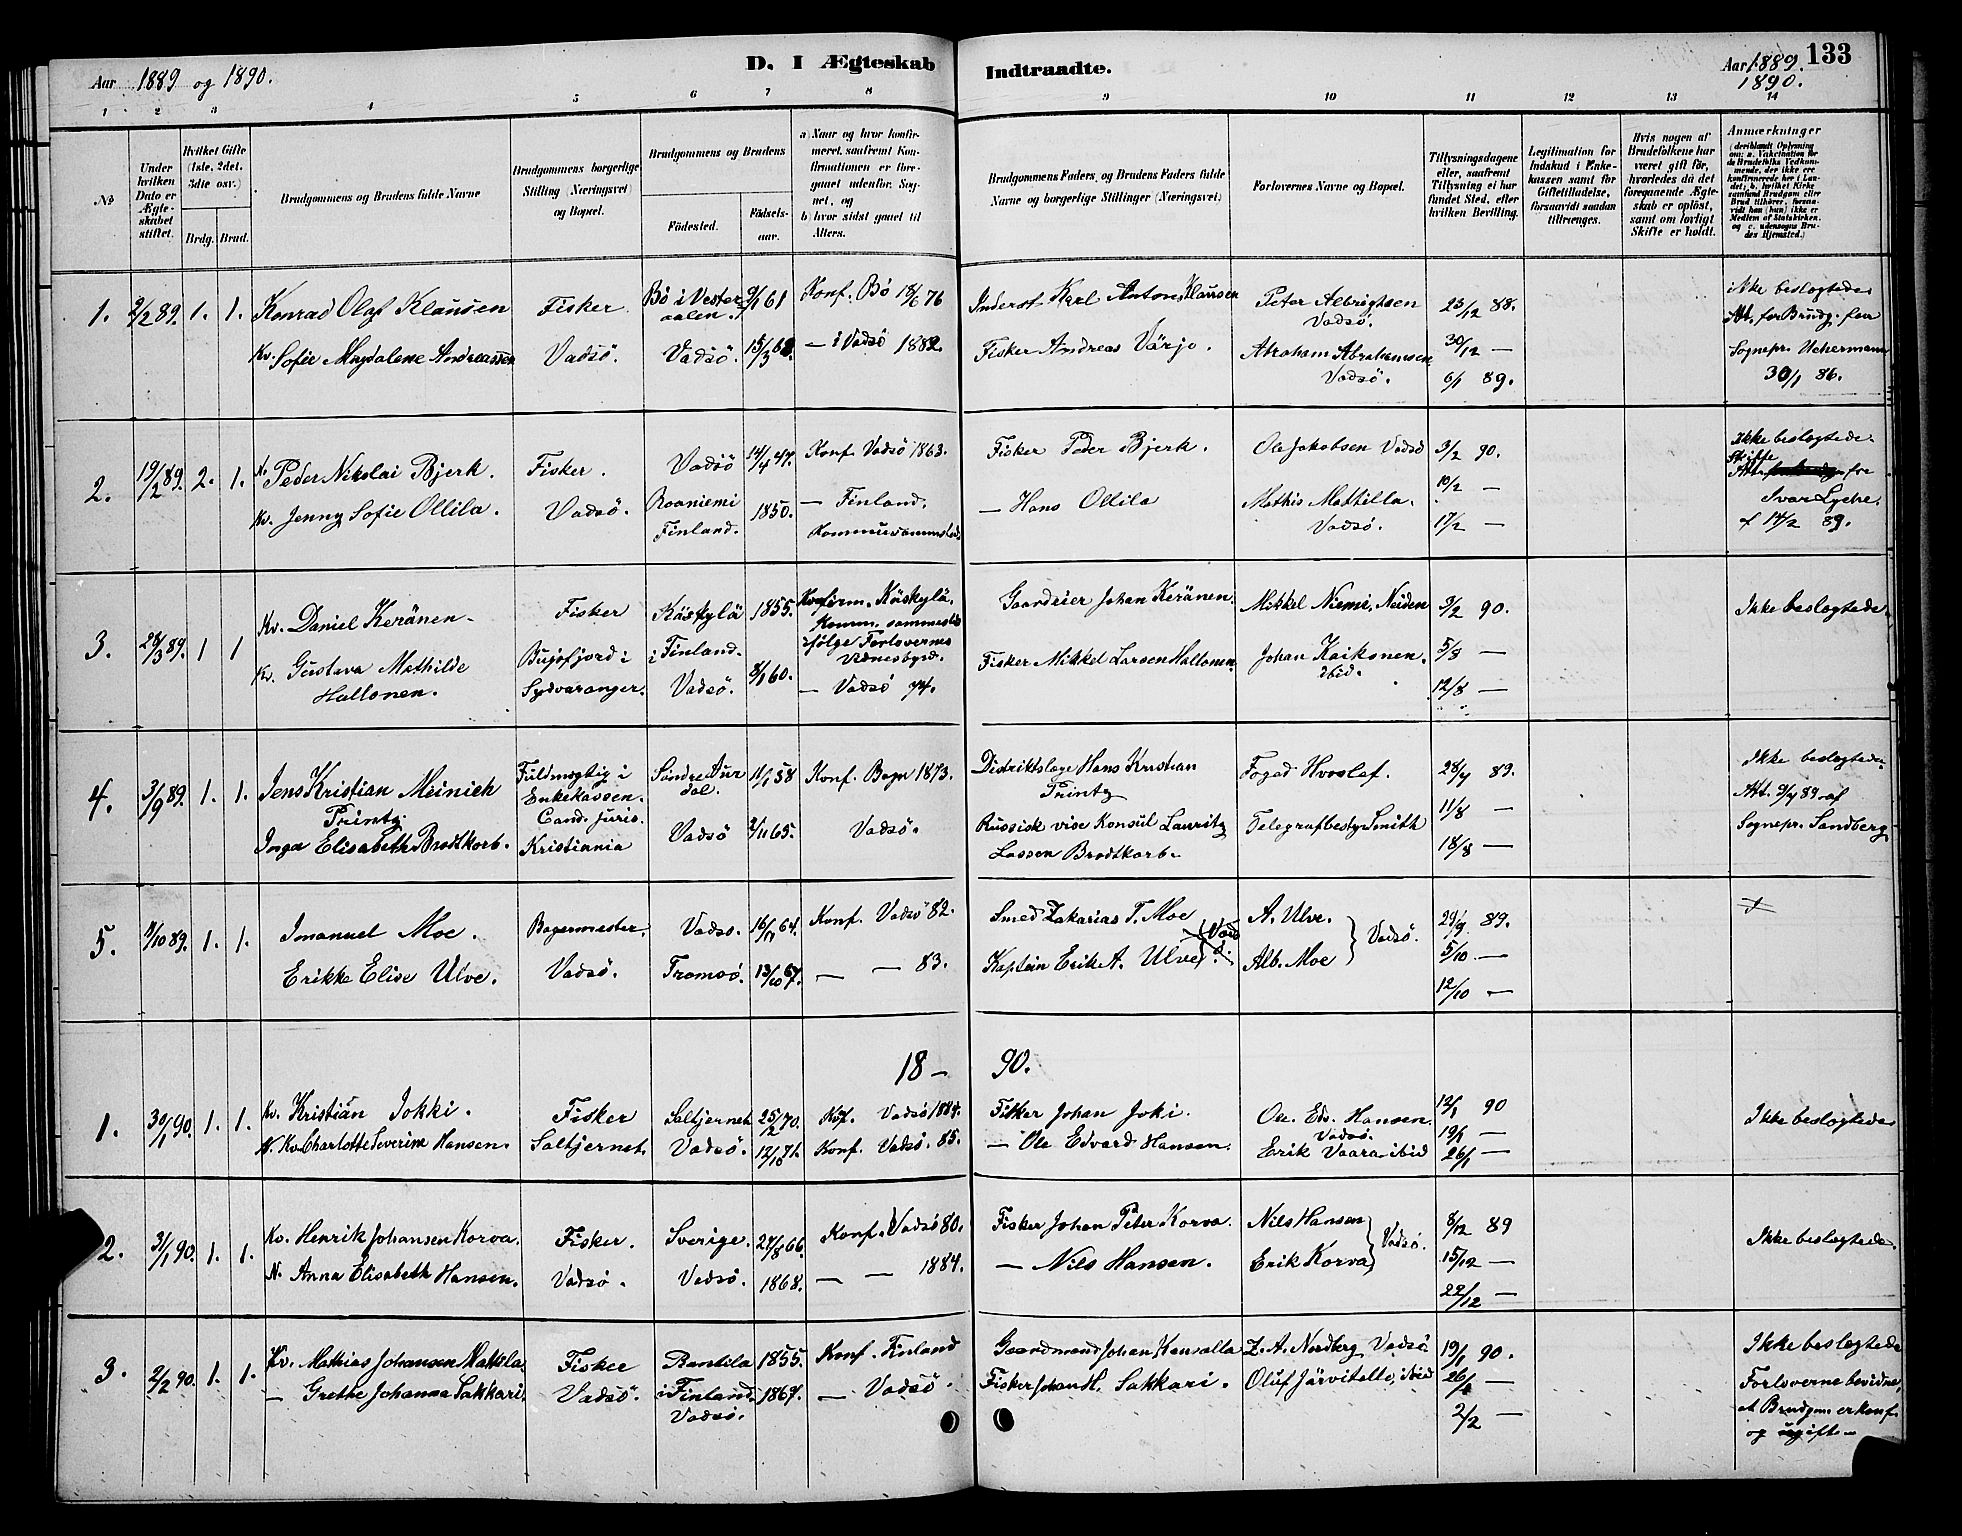 Aar 1889 og 1890.
D. I Ægteskab Indtraadte.
Aar 1889. 1890.
133
1 2 3 4 5 6 7 8 9 10 11 12 13 14
No
Under hvilken Dato er Ægteskabet stiftet.
Hvilket Gifte (1ste, 2det, 3die osv.)
Brdg. Brud.
Brudgommens og Brudens fulde Navne
Brudgommens borgerlige Stilling (Næringsvei) og Bopæl.
Brudgommens og Brudens
Födested.
Födselsaar.
a) Naar og hvor konfirmeret, saafremt Konfirmationen er foregaaet udenfor Sognet, og
b) hvor sidst gaaet til Alters.
Brudgommens Faders og Brudens Faders fulde Navne og borgerlige Stillinger (Næringsvei)
Forlovernes Navne og Bopæl.
Tillysningsdagene eller, saafremt Tillysning ei har fundet Sted, efter hvilken Bevilling.
Legitimation for Indskud i Enkekassen samt for Giftetilladelse, forsaavidt saadan tiltrænges.
Hvis nogen af Brudefolkene har været gift för, hvorledes da det foregaaende Ægteskab er oplöst, samt om lovligt Skifte er holdt.
Anmærkninger
1. 2/2 89. 1. 1.
Konrad Olaf Klausen
Kv. Sofie Magdalene Andreassen
Fisker
Vadsö.
Bö i Vesteraalen.
Vadsö.
9/1 61
15/3 68.
Konf. Bö 18/6 76
— i Vadsö 1882.
Inderst Karl Anton Klausen
Fisker Andreas Värjo.
Peter Albrigtsen
Vadsö.
Abraham Abrahamsen
Vadsö.
23/12 88.
30/12 —
6/1 89.
Ikke beslegtede
Att. for Brudg. fra
Sognepr. Uchermann
30/1 86.
2. 19/2 89. 2. 1.
N. Peder Nikolai Bjerk.
Kv. Jenny Sofie Ollila.
Fisker.
Vadsö.
Vadsö
Roaniemi
Finland.
14/4 47.
1850.
Konf. Vadsö 1863.
— Finland.
Kommun. sammesteds
Fisker Peder Bjerk.
— Hans Ollila
Ole Jakobsen Vadsö
Mathis Mattilla.
Vadsö.
3/2 90.
10/2 —
17/2 —
Ikke beslegtede.
Skifte
Att. fra
Ivar Lyche.
f 14/2 89.
3. 28/3 89. 1 1
Kv. Daniel Keränen.
Kv. Gustava Mathilde
Hallonen.
Fisker
Bugofjord i
Sydvaranger.
Käskylä
i Finland.
Vadsö.
1855.
8/1 60.
Konfirm. Käskylä.
Komm. sammesteds
ifölge Forlovernes
Vidnesbyrd.
— Vadsö 74.
Gaardeier Johan Keränen.
Fisker Mikkel Larsen Hallonen.
Mikkel Niemi, Neiden
Johan Kaikonen.
ibid.
3/2 90.
5/8 —
12/8 —
Ikke beslegtede.
4. 3/9 89. 1. 1.
Jens Kristian Meinich
Printz.
Inga Elisabeth Brodtkorb.
Fuldmegtig i
Enkekassen.
Cand. juris.
Kristiania
Söndre Aurdal.
Vadsö
11/1 58
2/11 65.
Konf. Bagn 1873.
Vadsö.
Distriktslæge Hans Kristian
Printz
Russisk vise Konsul Lauritz
Lassen Brodtkorb.
Foged Hvoslef.
Telegrafbestyr Smith
28/7 89.
11/8 —
18/8 —
Ikke beslegtede.
Att. 31/7 89 af
Sognepr. Sandberg
5. 11/10 89. 1. 1.
Imanuel Moe.
Erikke Elise Ulve.
Bagermester.
Vadsö.
Vadsö.
Tromsö.
16/11 64.
13/10 67.
Konf. Vadsö 82.
— — 83.
Smed Zakarias T. Moe
Kaptein Erik A. Ulve
A. Ulve.
Alb. Moe
Vadsö.
29/9 89.
5/10 —
12/10 —
18 — 90.
1. 30/1 90. 1. 1.
Kv. Kristian Jokki.
N. Kv. Charlotte Severine Hansen.
Fisker
Saltjernet.
Saltjernet
Vadsö.
25/2 70.
12/10 71.
Kof. Vadsö 1884.
Konf. Vadsö. 85.
Fisker Johan Joki.
— Ole Edvard Hansen.
Ole. Edv. Hansen.
Vadsö.
Erik Vaara ibid
12/1 90
19/1 —
26/1 —
Ikke beslegtede
2. 31/1 90. 1. 1.
Kv. Henrik Johansen Korva.
N. Anna Elisabeth Hansen.
Fisker.
Vadsö.
Sverige.
Vadsö.
27/8 66.
1868.
Konf. Vadsö 80.
— — 1884.
Fisker Johan Peter Korva.
— Nils Hansen.
Nils Hansen
Erik Korva
Vadsö.
8/12 89
15/12 —
22/12 —
Ikke beslegtede.
3. 2/2 90. 1. 1.
Kv. Mathias Johansen Mattila
— Grethe Johanna Sakkari.
Fisker
Vadsö.
Rantila
i Finland
Vadsö.
1855.
1867.
Konf. Finland
— Vadsö.
Gaardmand Johan Kensalla
Fisker Johan H. Sakkari.
Z. A. Nordberg Vadsö
Oluf Järvitello, ibid
19/1 90.
26/1 —
2/2 —
Ikke beslegtede
Forloverne bevidne,
at Brudgm. er konf.
og ugift.